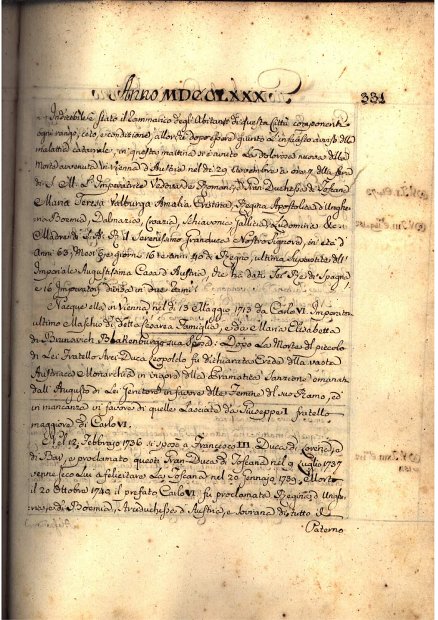 Anno MDCCLXXX
331
Indicibile è stato il rammarico degli Abitanti di questa Città componenti
ogni rango, ceto, e condizione, allorchè dopo esser giunto l'infausto avviso della
malattia catarrale, in questa mattina è venuta la dolorosa nuova della
Morte avvenuta in Vienna d'Austria nel dì 29 Novembre a ore 9 della sera
di S. M. L'Imperatrice Vedova dei Romani, Gran Duchessa di Toscana
Maria Teresa Valburga Amalia Cristina Regina Apostolica d'Unghe-
ria Boemia, Dalmazia, Croazia, Schiavonia, Gallizia e Lodomiria &c
Madre di S. A. R. il Serenissimo Granduca Nostro Signore, in età d'
Anni 63, Mesi 6 e giorni 16 e anni 40 di Regno, ultima Superstite dell'
Imperiale Augustissima Casa d'Austria, che ha dati Sei Re di Spagna
e 16 Imperatori divisa in due Rami
Nacque ella in Vienna nel dì 13 Maggio 1717 da Carlo VI. Imperatore
ultimo Maschio di detta Cesarea Famiglia, e da Maria Elisabetta
di Brunsvich Blankenburgo sua Sposa: Dopo la Morte del piccolo
di Lei Fratello Arci-Duca Leopoldo fu dichiarata Erede della vasta
Austriaca Monarchia in vigore della Pramatica Sanzione emanata
dall'Augusto di Lei Genitore in favore delle Femine del suo Ramo, ed
in mancanza in favore di quelle lasciate da Giuseppe I fratello
maggiore di Carlo VI.
Nel 12. Febbraio 1736 si sposò a Francesco III Duca di Lorena, e
di Bar, e proclamato questi Gran Duca di Toscana nel 9 Luglio 1737
venne seco Lui a felicitare la Toscana nel 20 Gennajo 1739. Morto
il 20 Ottobre 1740 il prefato Carlo VI fu proclamata Regina d'Unghe-
ria, e di Boemia, Arciduchessa d'Austria, e sovrana di tutto il
Paterno